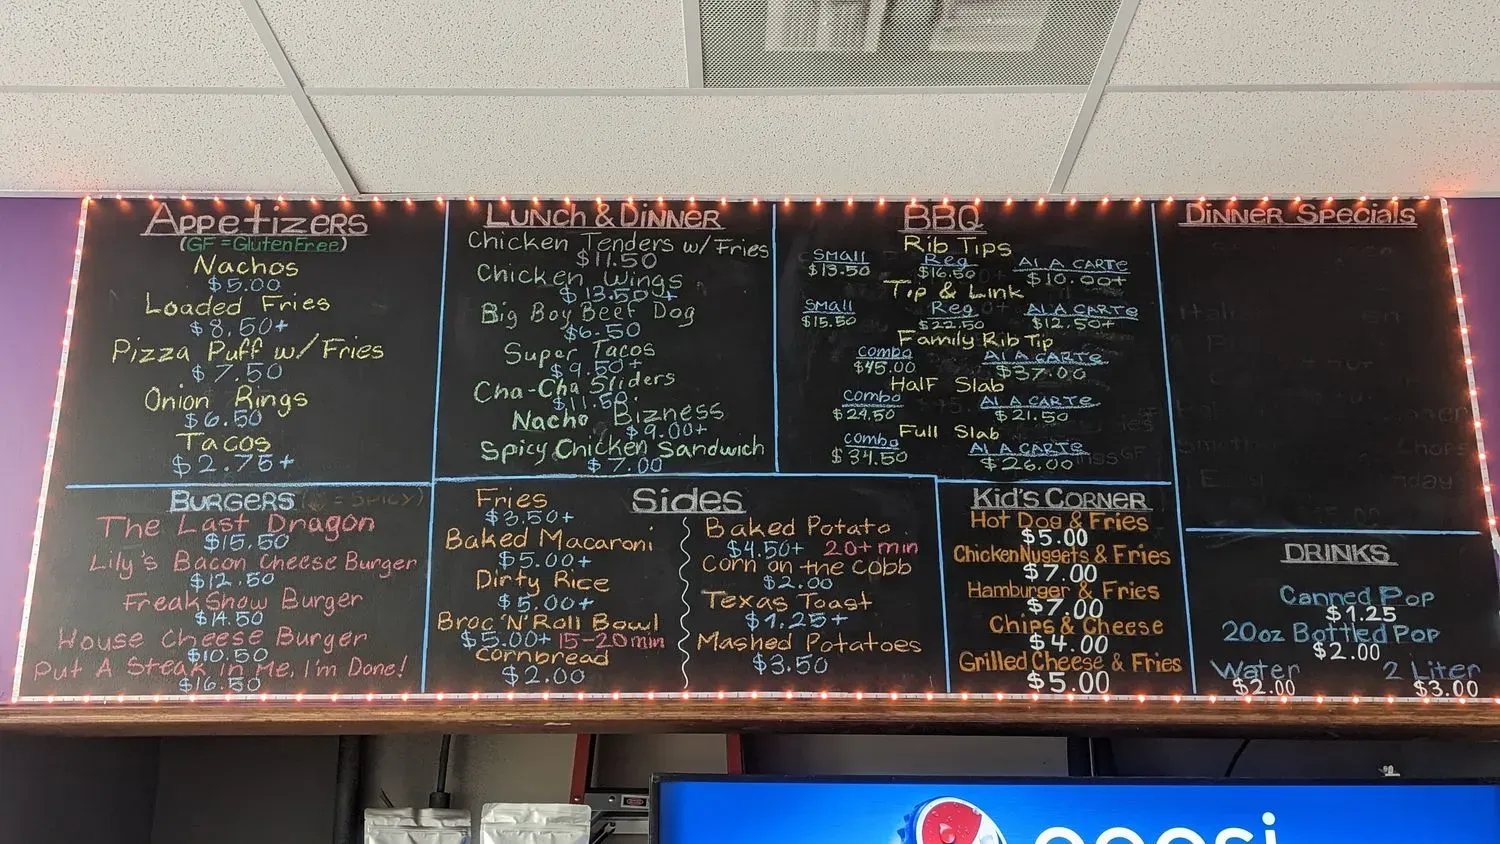 Appetizers
(GF = Gluten Free)
Nachos
$5.00
Loaded Fries
$8.50+
Pizza Puff w/ Fries
$7.50
Onion Rings
$6.50
Tacos
$2.75+
Lunch & Dinner
Chicken Tenders w/ Fries
$11.50
Chicken Wings
$13.50+
Big Boy Beef Dog
$6.50
Super Tacos
$9.50+
Cha-Cha Sliders
$11.50
Nacho Bizness
$9.00+
Spicy Chicken Sandwich
$7.00
BBQ
Rib Tips
Small Reg Al A Carte
$13.50 $16.50 $10.00+
Tip & Link
Small Reg Al A Carte
$15.50 $22.50 $12.50+
Family Rib Tip
Combo Al A Carte
$45.00 $37.00
Half Slab
Combo Al A Carte
$24.50 $21.50
Full Slab
Combo Al A Carte
$34.50 $26.00
Dinner Specials
Burgers
The Last Dragon
$15.50
Lily's Bacon Cheese Burger
$12.50
Freak Show Burger
$14.50
House Cheese Burger
$10.50
Put A Steak In Me, I'm Done!
$16.50
Sides
Fries
$3.50+
Baked Macaroni
$5.00+
Dirty Rice
$5.00+
Broc 'N' Roll Bowl
$5.00+ 15-20min
Cornbread
$2.00
Baked Potato
$4.50+ 20+min
Corn on the Cobb
$2.00
Texas Toast
$1.25+
Mashed Potatoes
$3.50
Kid's Corner
Hot Dog & Fries
$5.00
Chicken Nuggets & Fries
$7.00
Hamburger & Fries
$7.00
Chips & Cheese
$4.00
Grilled Cheese & Fries
$5.00
Drinks
Canned Pop
$1.25
20oz Bottled Pop
$2.00
Water 2 Liter
$2.00 $3.00
pepsi